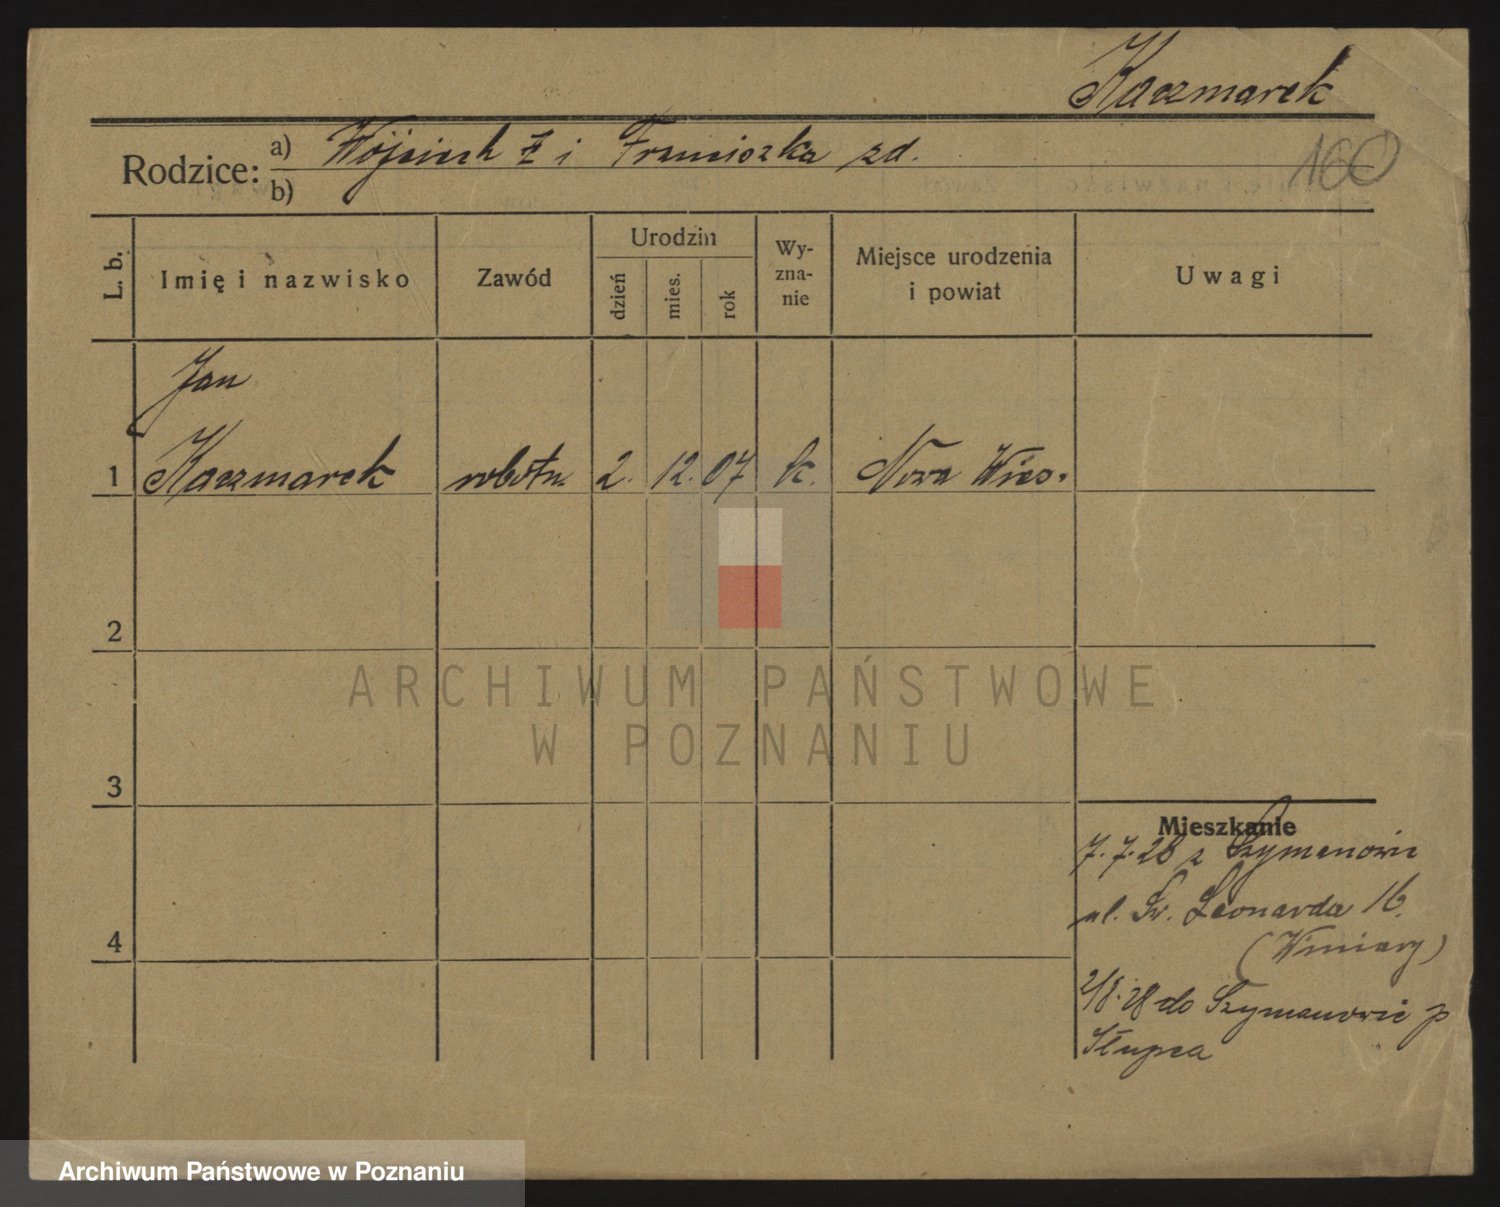 Kaczmarek
160
Rodzice: a) Wojciech Ł i Franciszka zd.
b)
L. b.
Imię i nazwisko
Zawód
Urodzin
dzień
mies.
rok
Wy-
zna-
nie
Miejsce urodzenia
i powiat
Uwagi
Jan
1 Kaczmarek robotn. 2. 12. 07 k. Nowa Wies.
2
3
4
Mieszkanie
7.7.28 z Szymanowic
ul. Św. Leonarda 16.
(Winiary)
2/8.28 do Szymanowic p
Słupca
ARCHIWUM PAŃSTWOWE
W POZNANIU
Archiwum Państwowe w Poznaniu